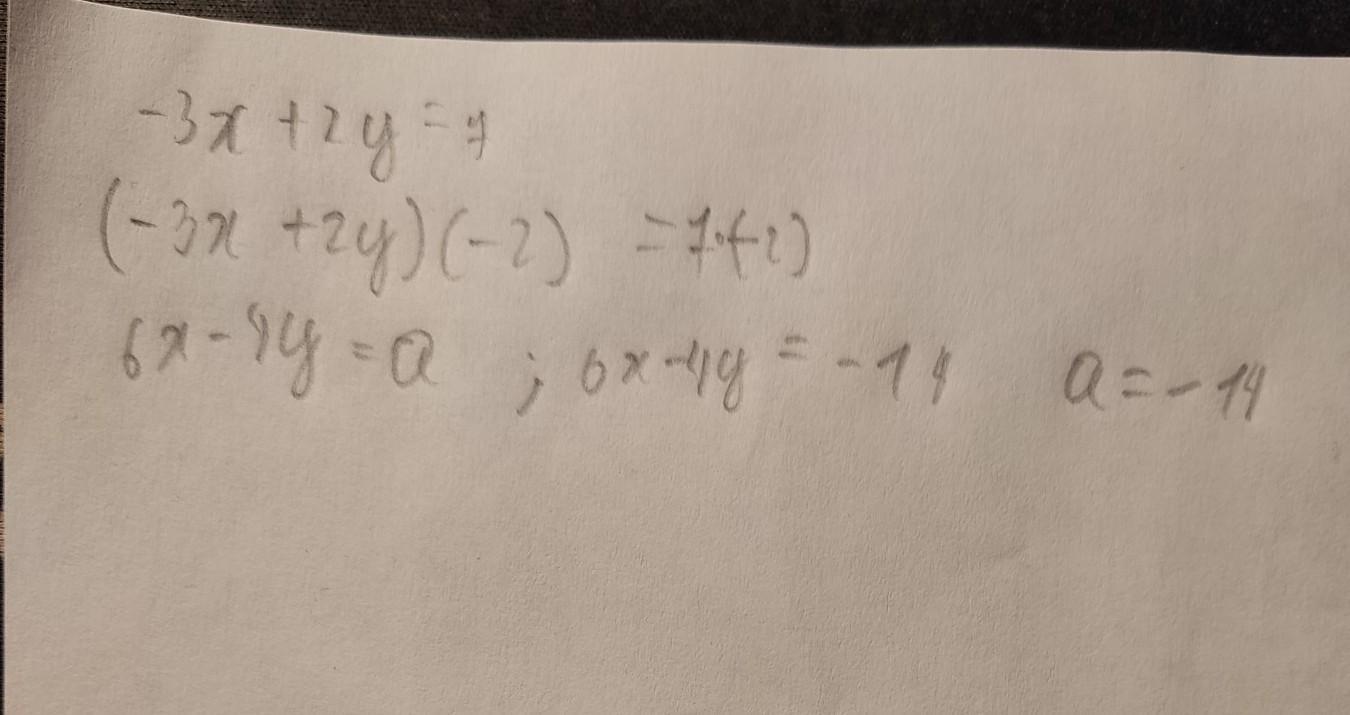 -3x + 2y = 7
(-3x + 2y)(-2) = 7·(-2)
6x - 4y = a ; 6x - 4y = -14 a = -14